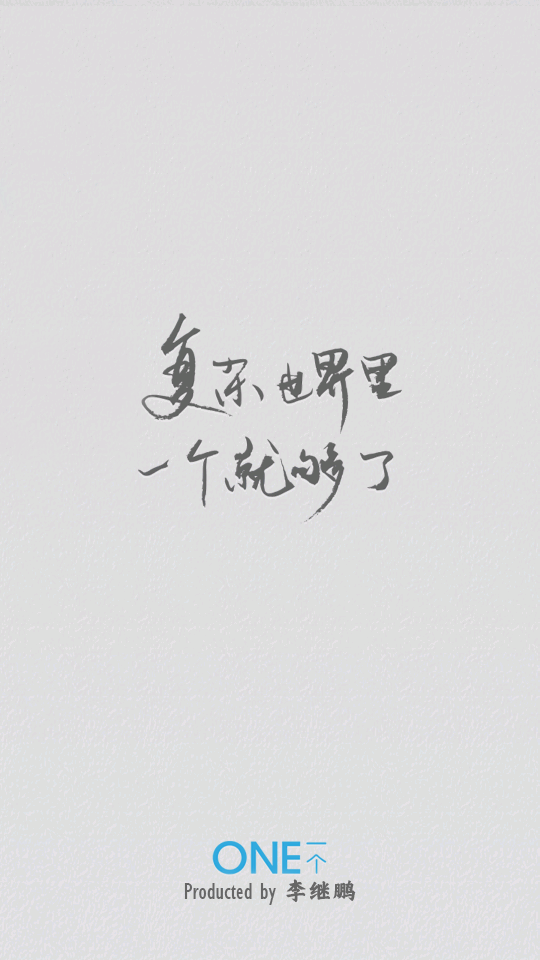 复杂世界里
一个就够了
ONE一个
Producted by 李继鹏